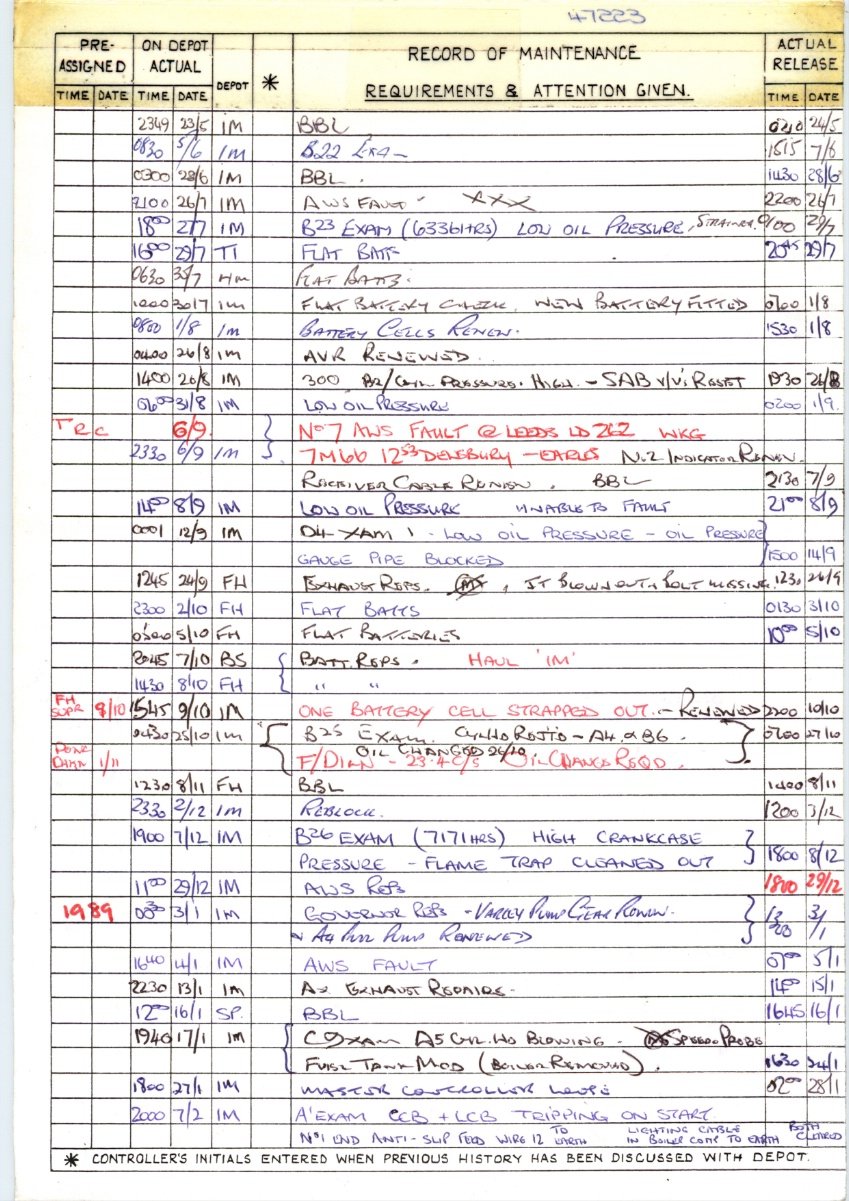 47223
PRE-ASSIGNED ON DEPOT ACTUAL DEPOT * RECORD OF MAINTENANCE REQUIREMENTS & ATTENTION GIVEN. ACTUAL RELEASE
TIME DATE TIME DATE TIME DATE
2349 23/5 IM BBL 0210 24/5
0830 5/6 IM B22 Exa- 1515 7/6
0300 28/6 IM BBL. 1430 28/6
2100 26/7 IM AWS FAULT - XXX 2200 26/7
18⁰⁰ 27/7 IM B23 EXAM (6336HRS) LOW OIL PRESSURE, STRAINER 0100 29/7
16⁰⁰ 29/7 TI FLAT BATT 20⁴⁵ 29/7
0630 FLAT BATTS.
30/7 IM FLAT BATTERY CHECK, NEW BATTERY FITTED 0700 1/8
0800 1/8 IM BATTERY CELLS RENEW. 1530 1/8
0400 26/8 IM AVR RENEWED.
1400 26/8 IM 300 BR/CYL PRESSURE. HIGH. - SAB V/V's RESET 1930 26/8
0600 31/8 IM LOW OIL PRESSURE 0200 1/9.
TRC 6/9. No7 AWS FAULT @ LEEDS LD 262 WKG
2330 6/9 IM 7M66 12⁵³ DEWSBURY - EARLES No.2 INDICATOR RENEW.
RECEIVER CABLE RENEW. BBL 2130 7/9
14⁰⁰ 8/9 IM LOW OIL PRESSURE UNABLE TO FAULT 21⁰⁰ 8/9
0001 12/9 IM D4 XAM - LOW OIL PRESSURE - OIL PRESSURE
GAUGE PIPE BLOCKED 1500 14/9
1245 24/9 FH EXHAUST REPS. , JT BLOWN OUT & BOLT MISSING. 1230 26/9
2300 2/10 FH FLAT BATTS 0130 3/10
5/10 FH FLAT BATTERIES 10⁰⁰ 5/10
2045 7/10 BS BATT. REPS. HAUL 'IM'
1430 8/10 FH " "
FH SUPR 8/10 1545 9/10 IM ONE BATTERY CELL STRAPPED OUT. - RENEWED 2200 10/10
0430 25/10 IM B25 EXAM. CYL HD REJTD - A4 & B6. 0700 27/10
OIL CHANGED 26/10
1/11 F/DIAN - 23.4 C/S OIL CHANGE REQD.
1230 8/11 FH BBL 1400 8/11
2330 2/12 IM REBLOCK. 1200 3/12
1900 7/12 IM B26 EXAM (7171HRS) HIGH CRANKCASE
PRESSURE - FLAME TRAP CLEANED OUT 1800 8/12
11⁰⁰ 29/12 IM AWS REPS 1800 29/12
1989 3/1 IM GOVERNOR REPS - VARLEY PUMP GEAR RENEW. 3/1
& A4 PUMP RENEWED
16⁴⁰ 4/1 IM AWS FAULT 07⁰⁰ 5/1
2230 13/1 IM EXHAUST REPAIRS - 14⁰⁰ 15/1
12⁰⁰ 16/1 SP. BBL 1645 16/1
1940 17/1 IM C EXAM A5 CYL. HD BLOWING. SPEEDO PROBE
FUEL TANK MOD (BOILER REMOVED). 1630 24/1
1800 27/1 IM MASTER CONTROLLER LOOPE 02⁰⁰ 28/1
2000 7/2 IM A'EXAM CCB + LCB TRIPPING ON START
No1 END ANTI-SLIP FEED WIRE 12 TO EARTH LIGHTING CABLE IN BOILER COMP TO EARTH BOTH CLEARED
* CONTROLLER'S INITIALS ENTERED WHEN PREVIOUS HISTORY HAS BEEN DISCUSSED WITH DEPOT.